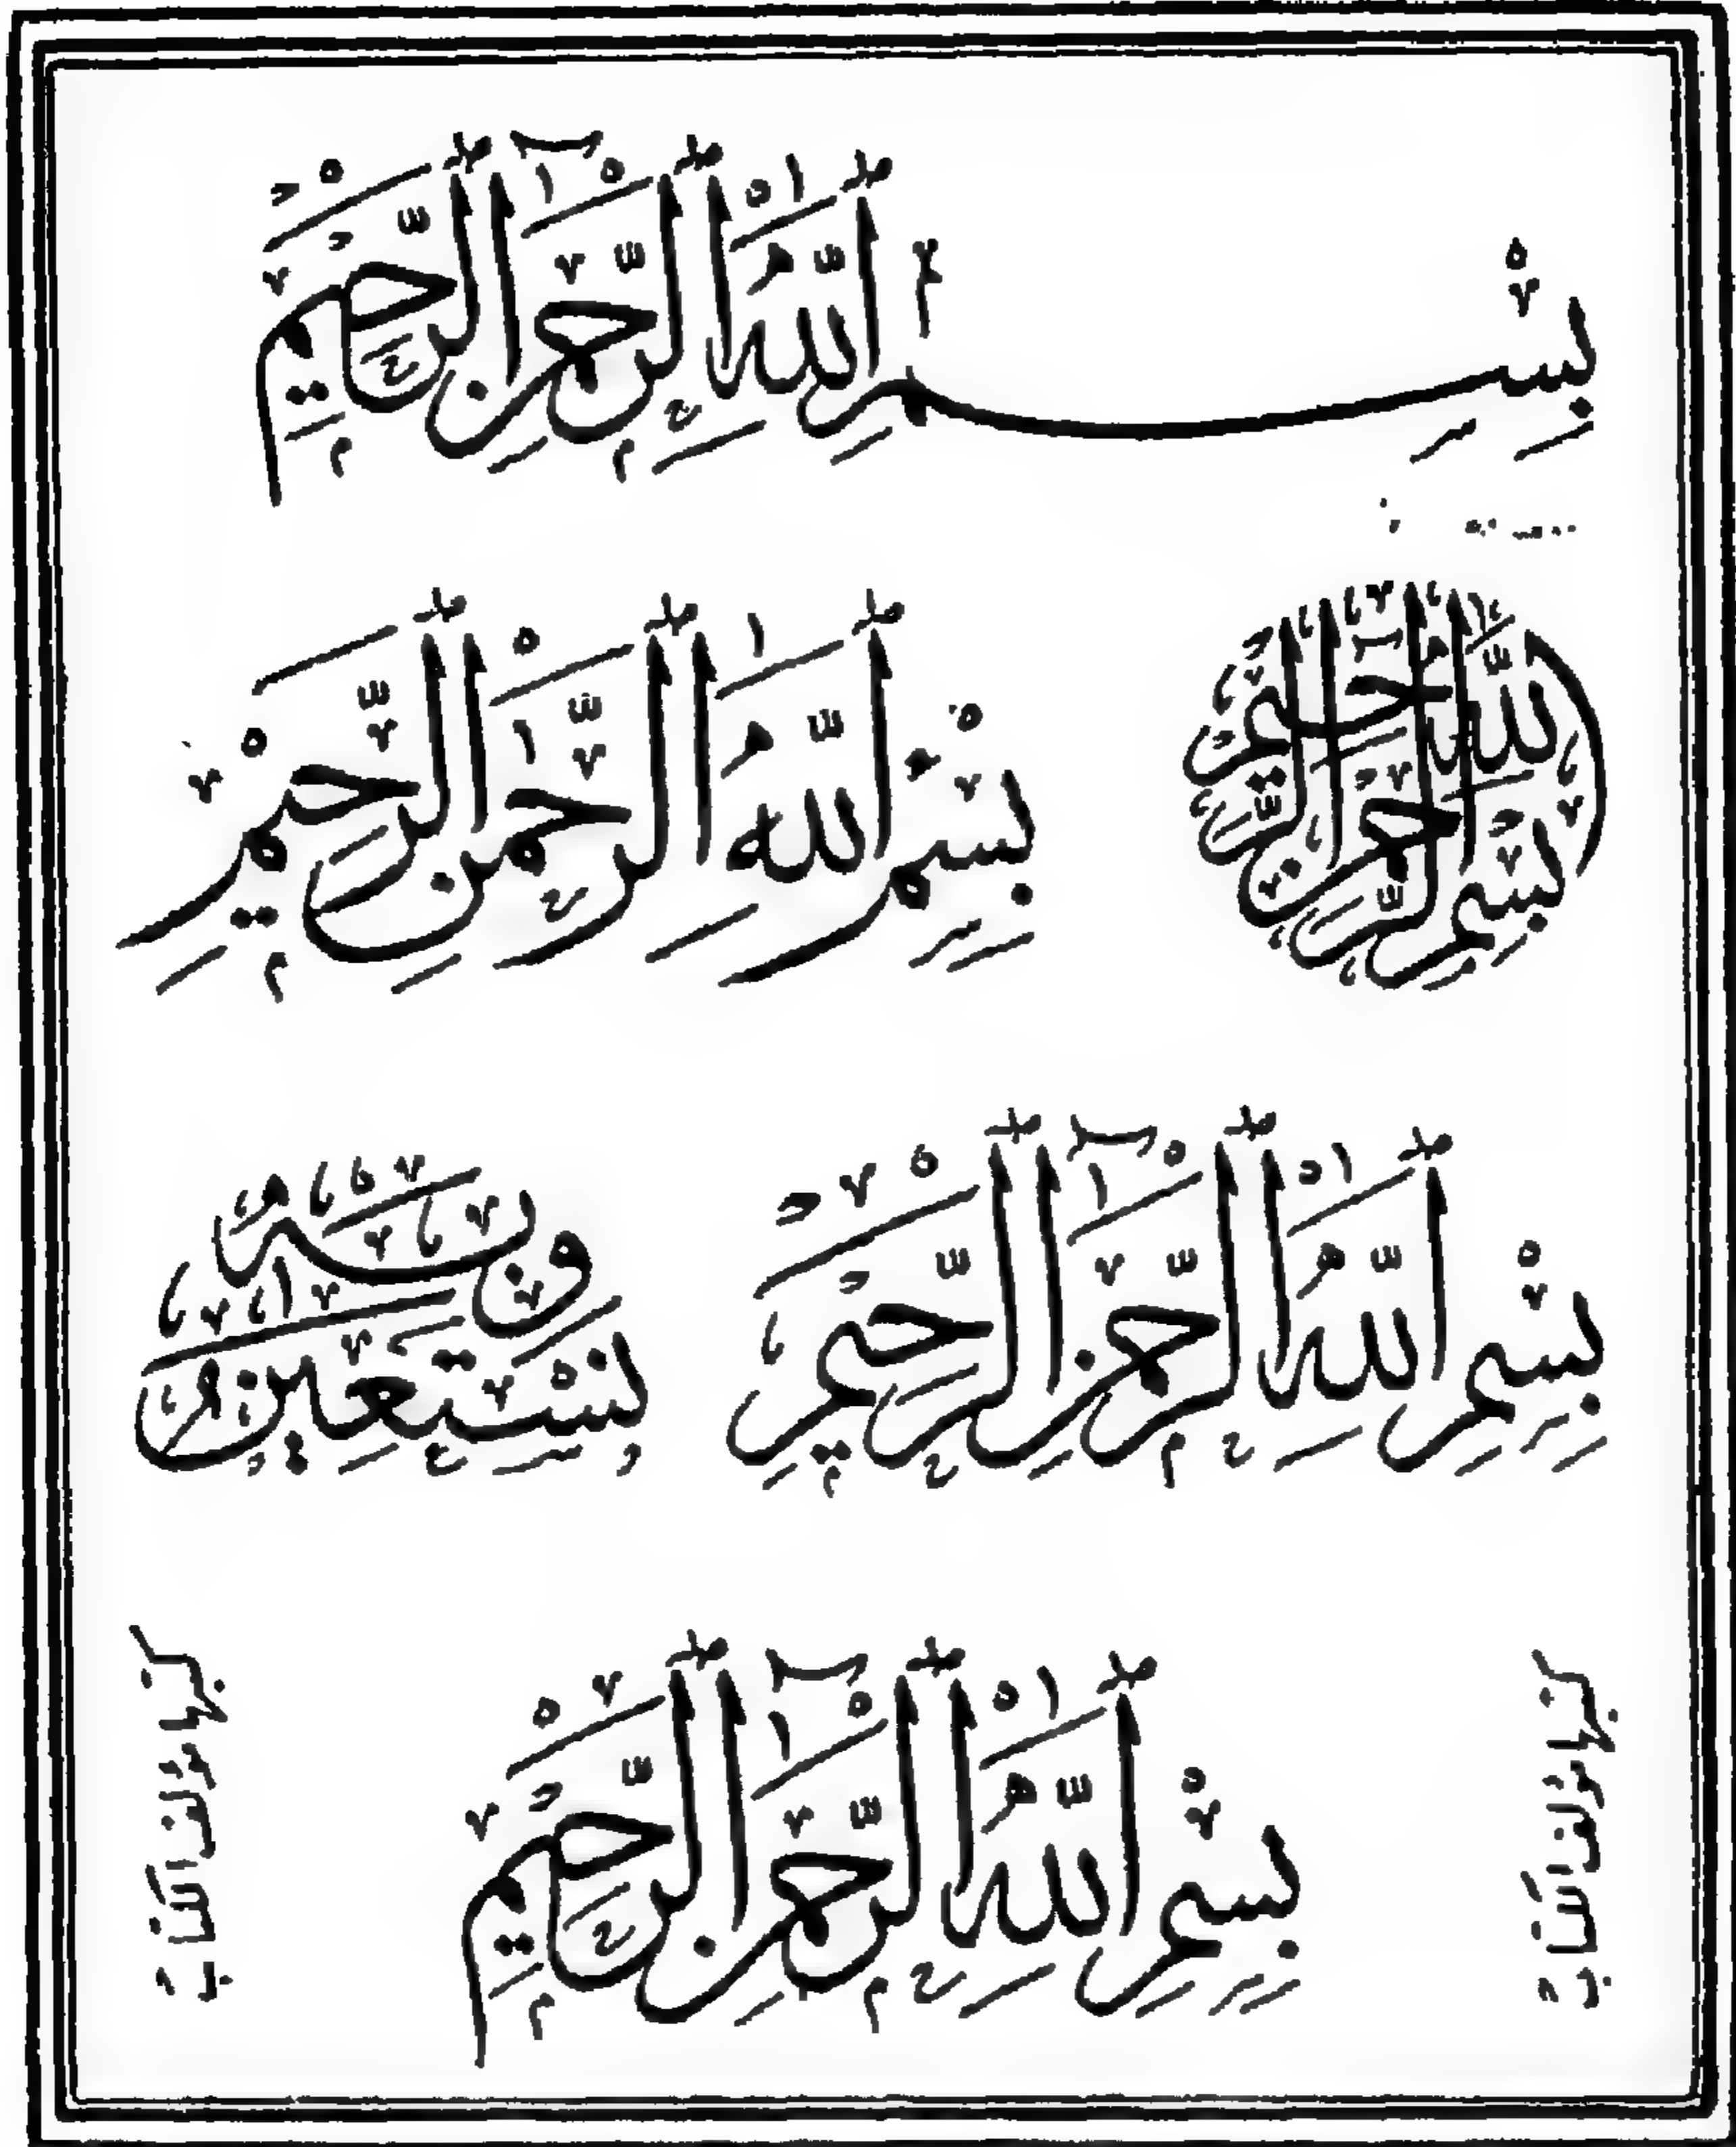 بِسْمِ اللّٰهِ الرَّحْمٰنِ الرَّحِيمِ
بِسْمِ اللّٰهِ الرَّحْمٰنِ الرَّحِيمِ
بِسْمِ اللّٰهِ الرَّحْمٰنِ الرَّحِيمِ
بِسْمِ اللّٰهِ الرَّحْمٰنِ الرَّحِيمِ
وَبِهِ نَسْتَعِينُ
بِسْمِ اللّٰهِ الرَّحْمٰنِ الرَّحِيمِ